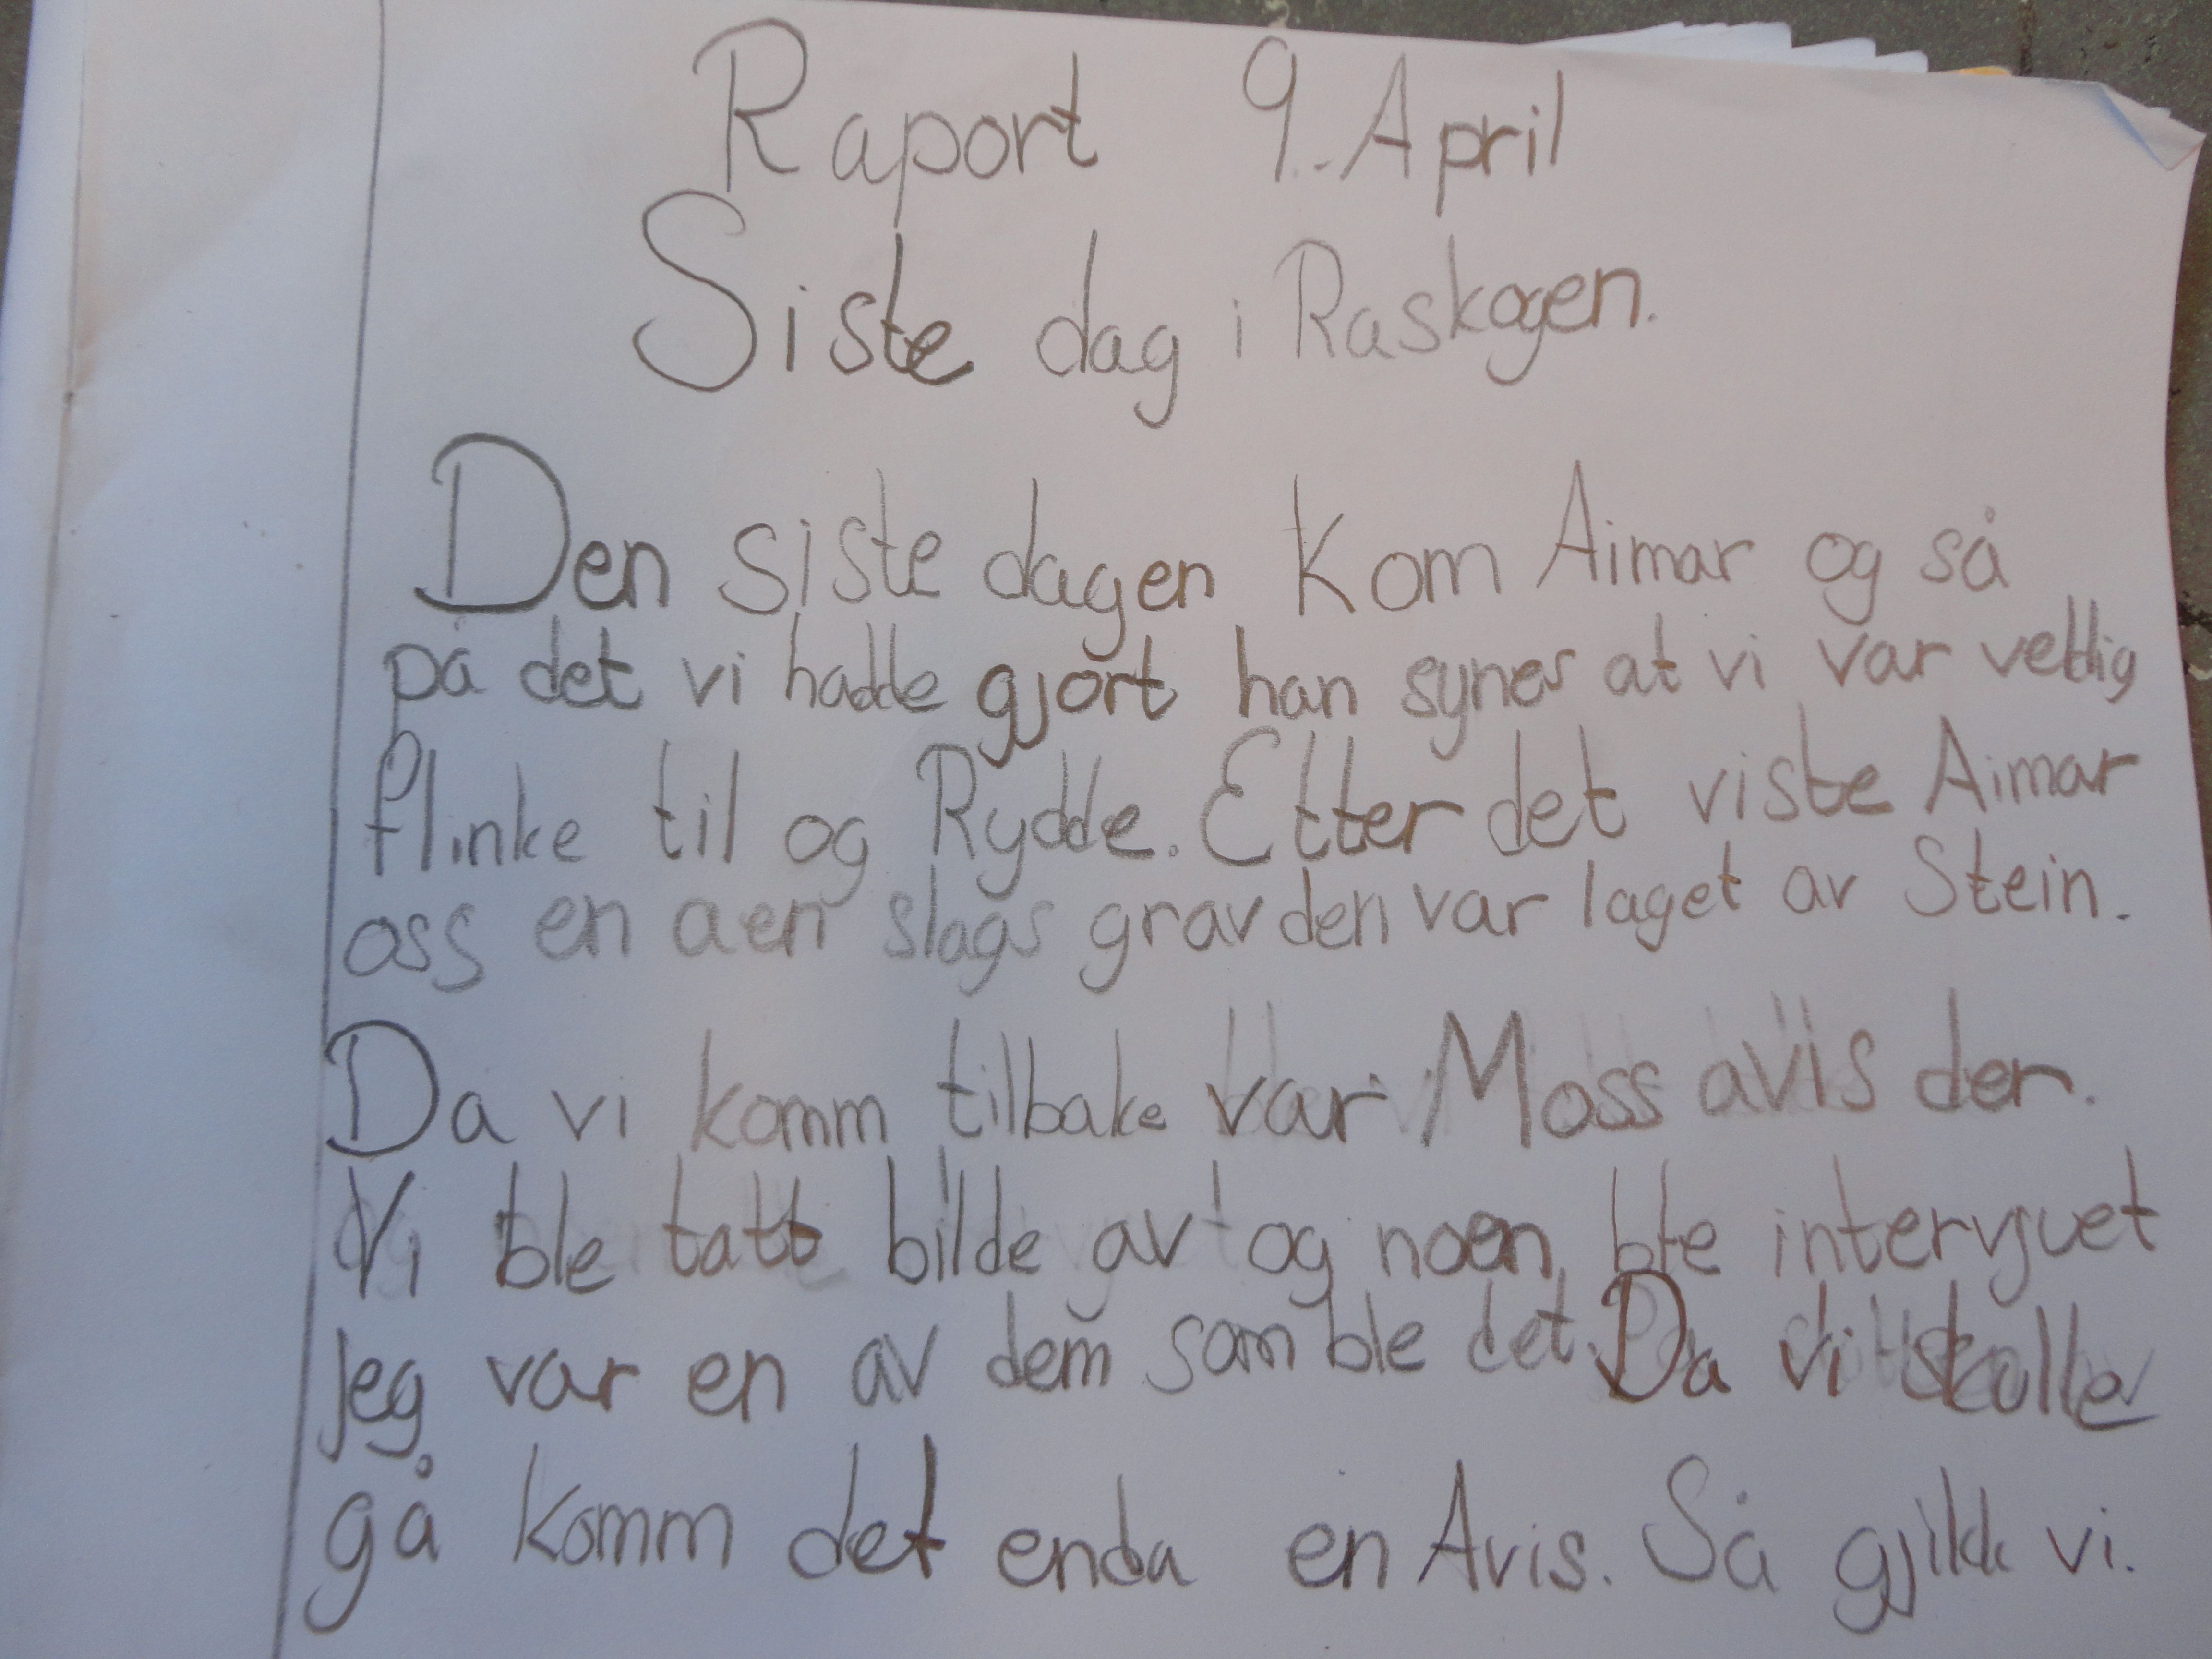 Raport 9. April
Siste dag i Raskogen.
Den siste dagen kom Aimar og så
på det vi hadde gjort han synes at vi var veldig
flinke til og Rydde. Etter det viste Aimar
oss en aen slags grav den var laget av Stein.
Da vi komm tilbake var Moss avis der.
Vi ble tatt bilde av og noen ble intervjuet
jeg var en av dem som ble det. Da vi skulle
gå komm det enda en Avis. Så gjikk vi.